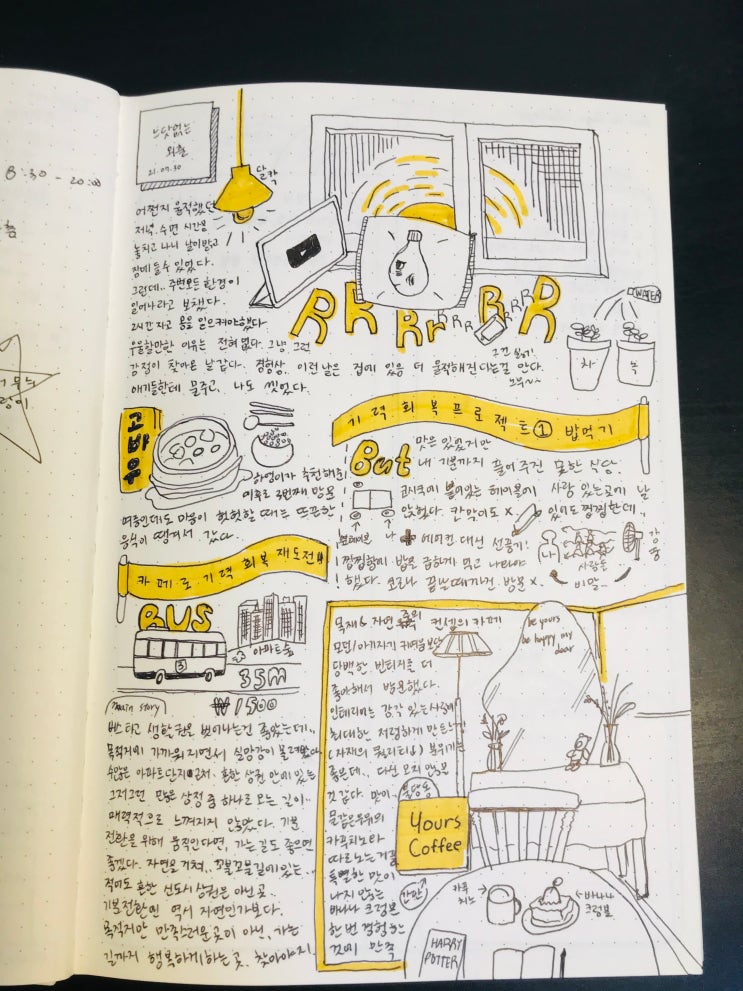 8:30 - 20:00
느닷없는
외출
21.09.30
딸칵
어쩐지 움직였던
저녁. 수면 시간을
놓치고 나니 날이밝고
잠에 들수 있었다.
그런데.. 주변모든 환경이
일어나라고 보챘다.
2시간 자고 몸을 일으켜야했다.
우울할만한 이유는 전혀 없다. 그냥 그런
감정이 찾아온 날 같다. 경험상, 이런 날은 집에 있음 더 울적해진다는걸 안다.
애기들한테 물주고, 나도 씻었다.
RRRrRRRRRRR
그건 싫어!
WATER
고바우
하영이가 추천해준
이후로 3번째 방문
여름인데도 마음이 헛헛할 때는 뜨끈한
음식이 땡겨서 갔다
기력회복프로젝트① 밥먹기
But
맛은 있었지만
내 기분까지 풀어주진 못한 식당.
있는곳에
앉혔다. 칸막이도 ✗ 있어도 찝찝한데,
에어컨 대신 선풍기!
나
사람들
찝찝함에 밥을 급하게 먹고 나와야
했다. 코로나 끝날때까진 방문 ✗
비말..
카페로 기력 회복 재도전!
BUS
3
아파트숲
35M
₩1500
main story
버스타고 생활권을 벗어나는건 좋았는데..
목적지에 가까워지면서 실망감이 몰려왔다
수많은 아파트단지를 거쳐. 흔한 상권 안에 있는
그저그런 많은 상점 중 하나로 오는 길이..
매력적으로 느껴지지 않았다. 기분
전환을 위해 움직인다면, 가는 길도 좋으면
좋겠다. 자연을 거쳐, 꼬불꼬불길에 있는..
적어도 흔한 신도시 상권은 아닌 곳.
기분전환엔 역시 자연인가보다.
목적지만 만족스러운곳이 아닌, 가는
길까지 행복하게하는곳, 찾아야지.
목재& 자연 컨셉의 카페
모던/아기자기 카페들보단
담백한 빈티지를 더
좋아해서 방문했다.
인테리어는 감각 있는 사람이
최대한 저렴하게 만든느낌
(자재의 퀄리티↓) 분위기는
좋은데.. 다신 오지 않을
것 같다. 맛이..
물같은우유의
카푸치노와
따로노는
특별한 맛이
나지 않는
바나나 크럼블
한 번 경험한
것에 만족
be yours
be happy my
dear
Yours
Coffee
간판
카푸
치노
바나나
크럼블
HARRY
POTTER